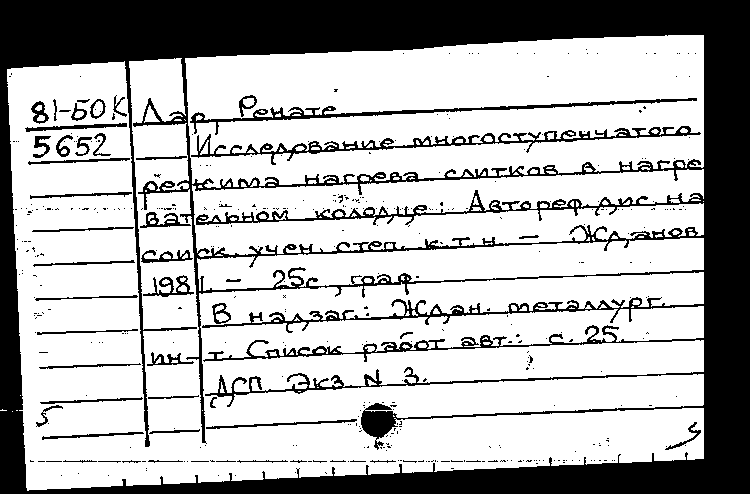 81-50К Лар, Ренате
5652 Исследование многоступенчатого
режима нагрева слитков в нагре
вательном колодце: Автореф. дис. на
соиск. учен. степ. к.т.н. — Жданов
1981. — 25с, граф.
В надзаг.: Ждан. металлург.
ин-т. Список работ авт.: с. 25.
ДСП. Экз N 3.
5